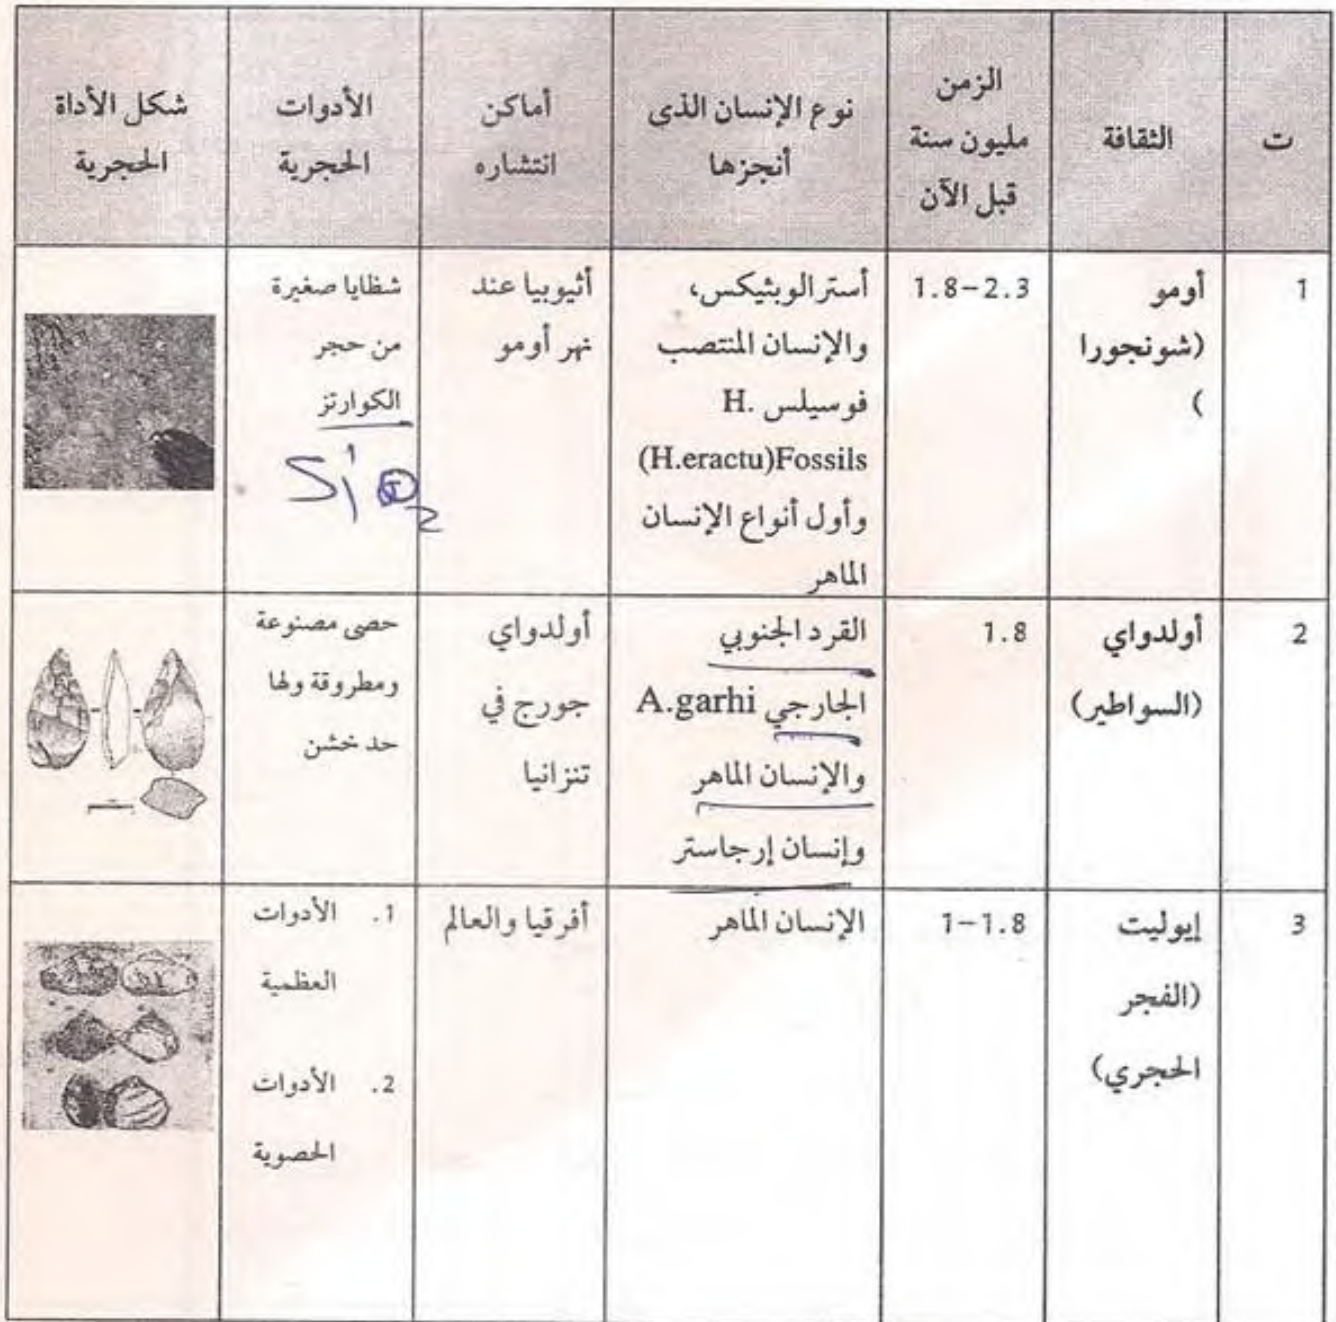 ت
الثقافة
الزمن
مليون سنة
قبل الآن
نوع الإنسان الذى
أنجزها
أماكن
انتشاره
الأدوات
الحجرية
شكل الأداة
الحجرية
1
أومو
(شونجورا
)
1.8-2.3
أسترالوبثيكس،
والإنسان المنتصب
فوسيلس H.
(H.eractu)Fossils
وأول أنواع الإنسان
الماهر
أثيوبيا عند
نهر أومو
شظايا صغيرة
من حجر
الكوارتز
SiO2
2
أولدواي
(السواطير)
1.8
القرد الجنوبي
الجارجي A.garhi
والإنسان الماهر
وإنسان إرجاستر
أولدواي
جورج في
تنزانيا
حصى مصنوعة
ومطروقة ولها
حد خشن
3
إيوليت
(الفجر
الحجري)
1-1.8
الإنسان الماهر
أفرقيا والعالم
1. الأدوات
العظمية
2. الأدوات
الحصوية